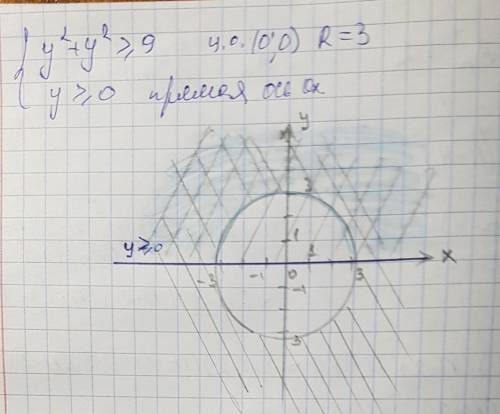 y²+y²≥9 ц.о. (0;0) R=3
y≥0 прямая ось Ox
y
3
1
y≥0
-3 -1 0 1 3 x
-1
3